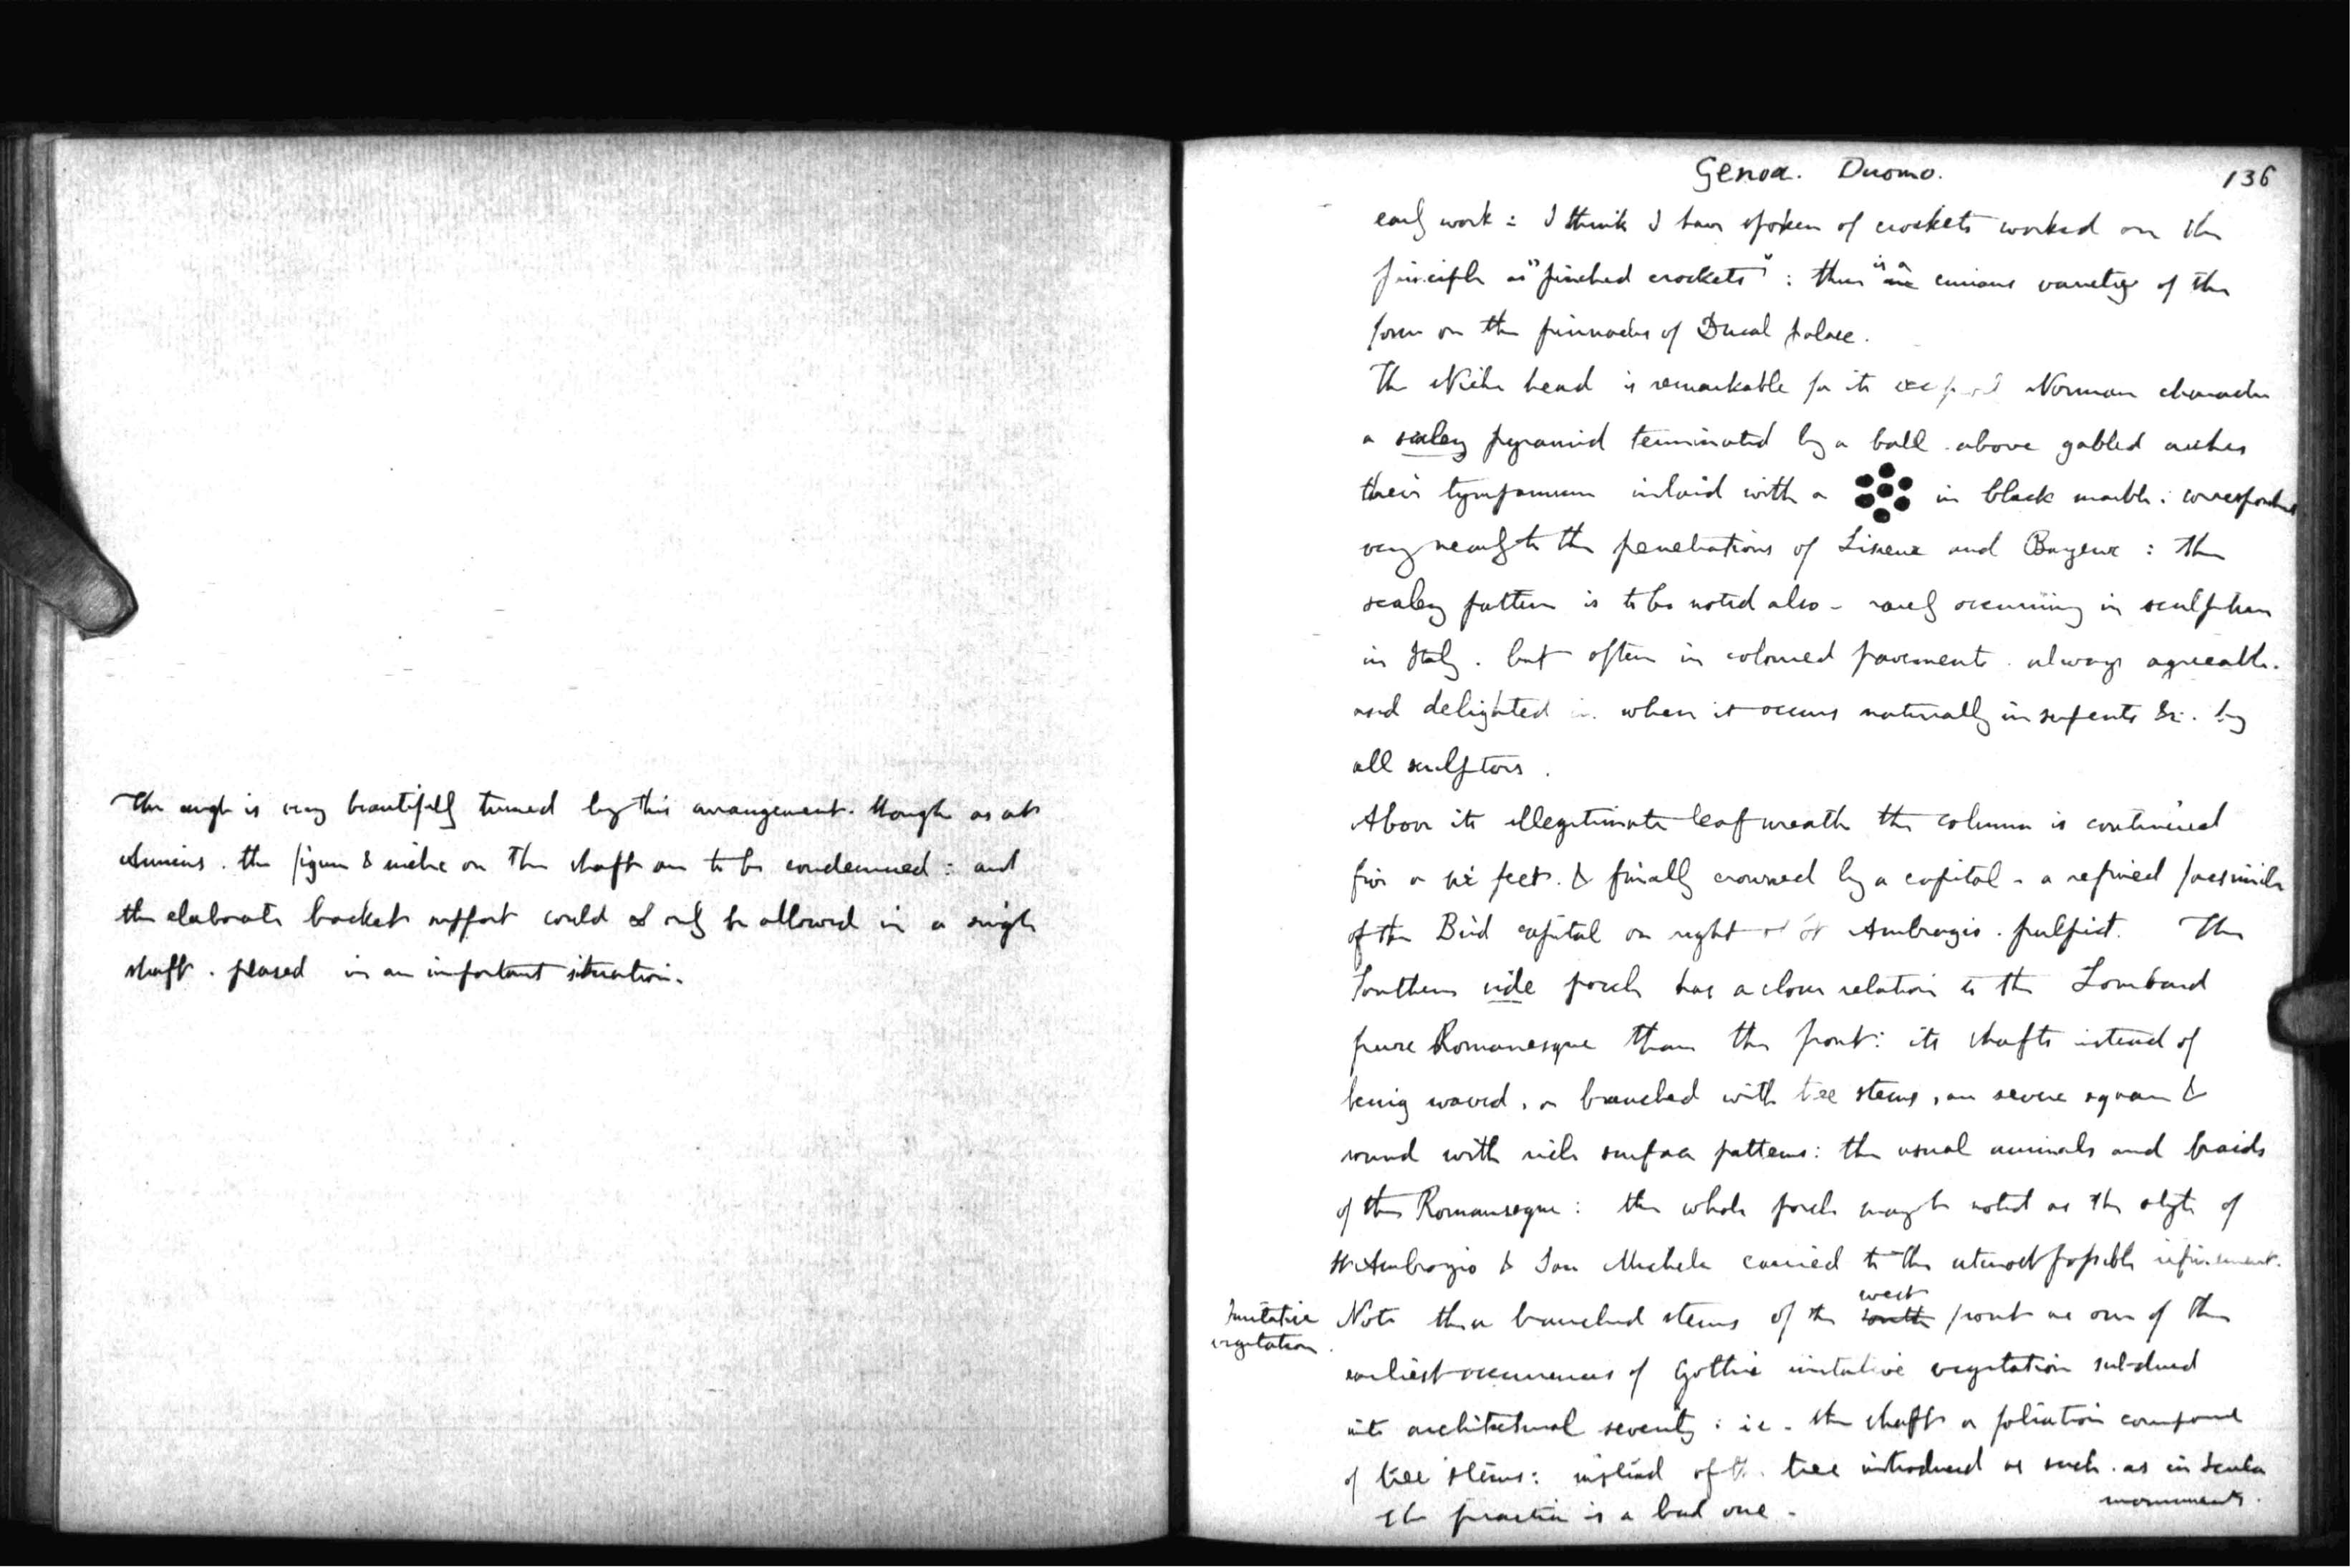 The angle is very beautifully turned by this arrangement. though as at
Amiens. the figure & niche on the shaft are to be condemned: and
the elaborate bracket support could only be allowed in a single
shaft. placed in an important situation.
Genoa. Duomo. 136
early work: I think I have spoken of crockets worked on this
principle as "pinched crockets": there is a curious variety of the
form on the pinnacles of Ducal palace.
The Niche head is remarkable for its Norman character
a scaley pyramid terminated by a ball. above gabled arches
their tympanum inlaid with a in black marble: corresponding
very nearly to the penetrations of Lisieux and Bayeux: the
scaley pattern is to be noted also - rarely occurring in sculpture
in Italy. but often in coloured pavements. always agreeable.
and delighted in. when it occurs naturally in serpents &c. by
all sculptors.
Above its illegitimate leaf wreath the column is continued
five or six feet. & finally crowned by a capital - a refined facsimile
of the Bird capital on right of St Ambrogio. pulpit. The
Southern side porch has a closer relation to the Lombard
pure Romanesque than the front: its shafts instead of
being waved, or branched with tree stems, are severe square &
round with rich surface patterns: the usual animals and braids
of the Romanesque: the whole porch may be noted as the style of
St Ambrogio & San Michele carried to the utmost possible refinement.
Imitative
vegetation.
Note the branched stems of the south west front as one of the
earliest occurrences of Gothic imitative vegetation subdued
into architectural severity: i.e. the shaft or foliation composed
of tree stems: instead of the tree introduced as such. as in Scala
monuments.
The practice is a bad one -